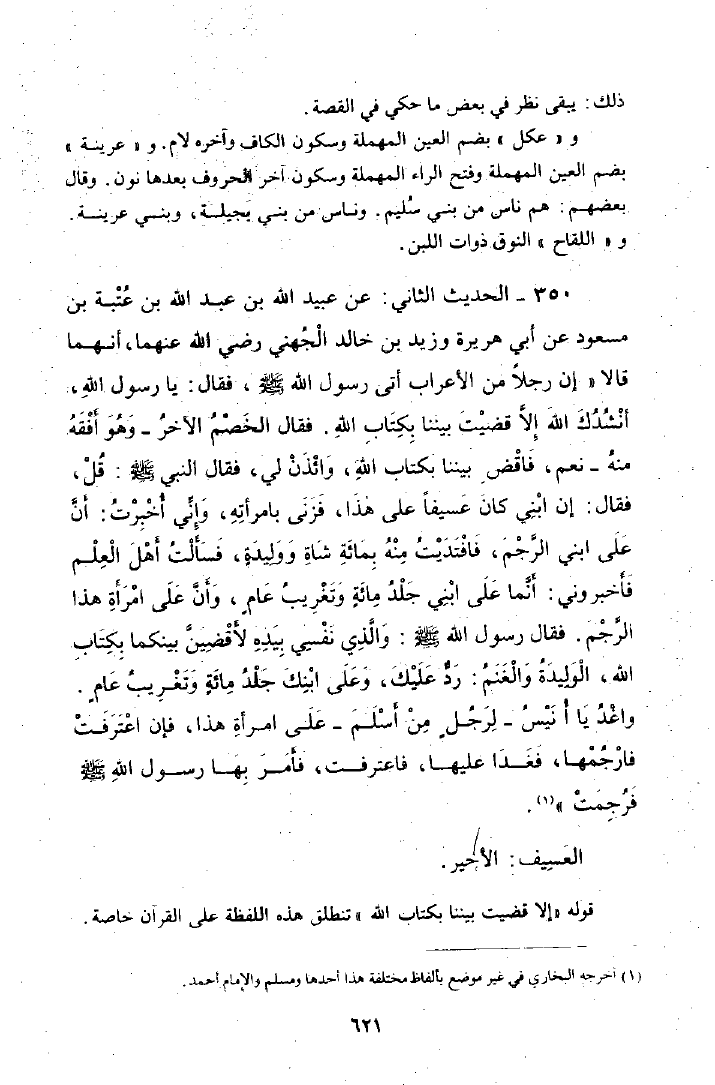 ذلك: يبقى نظر في بعض ما حكي في القصة.
و « عكل » بضم العين المهملة وسكون الكاف وآخره لام. و « عرينة »
بضم العين المهملة وفتح الراء المهملة وسكون آخر الحروف بعدها نون. وقال
بعضهم: هم ناس من بني سُليم. وناس من بني بجيلة، وبني عرينة.
و « اللقاح » النوق ذوات اللبن.
٣٥٠ ـ الحديث الثاني: عن عبيد الله بن عبد الله بن عُتْبة بن
مسعود عن أبي هريرة وزيد بن خالد الْجُهني رضي الله عنهما، أنهما
قالا « إن رجلاً من الأعراب أتى رسول الله ﷺ ، فقال: يا رسول اللهِ،
أنْشُدُكَ اللهَ إلاَّ قضيْتَ بيننا بِكِتَابِ اللهِ. فقال الخَصْمُ الآخرُ ـ وَهُوَ أَفْقَهُ
منهُ ـ نعم، فَاقْضِ بيننا بكتاب اللهِ، وَائْذَنْ لي، فقال النبي ﷺ : قُلْ،
فقال: إن ابْنِي كانَ عَسيفاً على هٰذا، فَزَنَى بامرأتِهِ، وَإنِّي أُخْبِرْتُ: أنَّ
على ابني الرَّجْمَ، فَافْتَدَيْتُ مِنْهُ بِمَائَةِ شَاةٍ وَوَلِيدَةٍ، فَسَأَلْتُ أهْلَ الْعِلْمِ
فَأَخبروني: أَنَّما على ابْنِي جَلْدُ مِائَةٍ وَتَغْرِيبُ عَامٍ، وَأنَّ عَلَى امْرَأةِ هذا
الرَّجْمَ. فقال رسول الله ﷺ : وَالَّذِي نَفْسي بِيَدِهِ لأقْضِيَنَّ بينكما بِكِتَابِ
الله، الْوَلِيدَةُ وَالْغَنَمُ: رَدٌّ عَلَيْكَ، وَعَلَى ابْنِكَ جَلْدُ مِائَةٍ وَتَغْرِيبُ عَامٍ.
واغْدُ يَا أُنَيْسُ ـ لِرَجُلٍ مِنْ أَسْلَمَ ـ عَلَى امرأةِ هذا، فإن اعْتَرَفَتْ
فارْجُمْها، فَغَدَا عليها، فاعترفت، فَأَمَرَ بِهَا رسول اللهِ ﷺ
فَرُجِمَتْ »(١).
العَسِيف: الأجير.
قوله «إلا قضيت بيننا بكتاب الله » تنطلق هذه اللفظة على القرآن خاصة.
(١) أخرجه البخاري في غير موضع بألفاظ مختلفة هذا أحدها ومسلم والإمام أحمد.
٦٢١